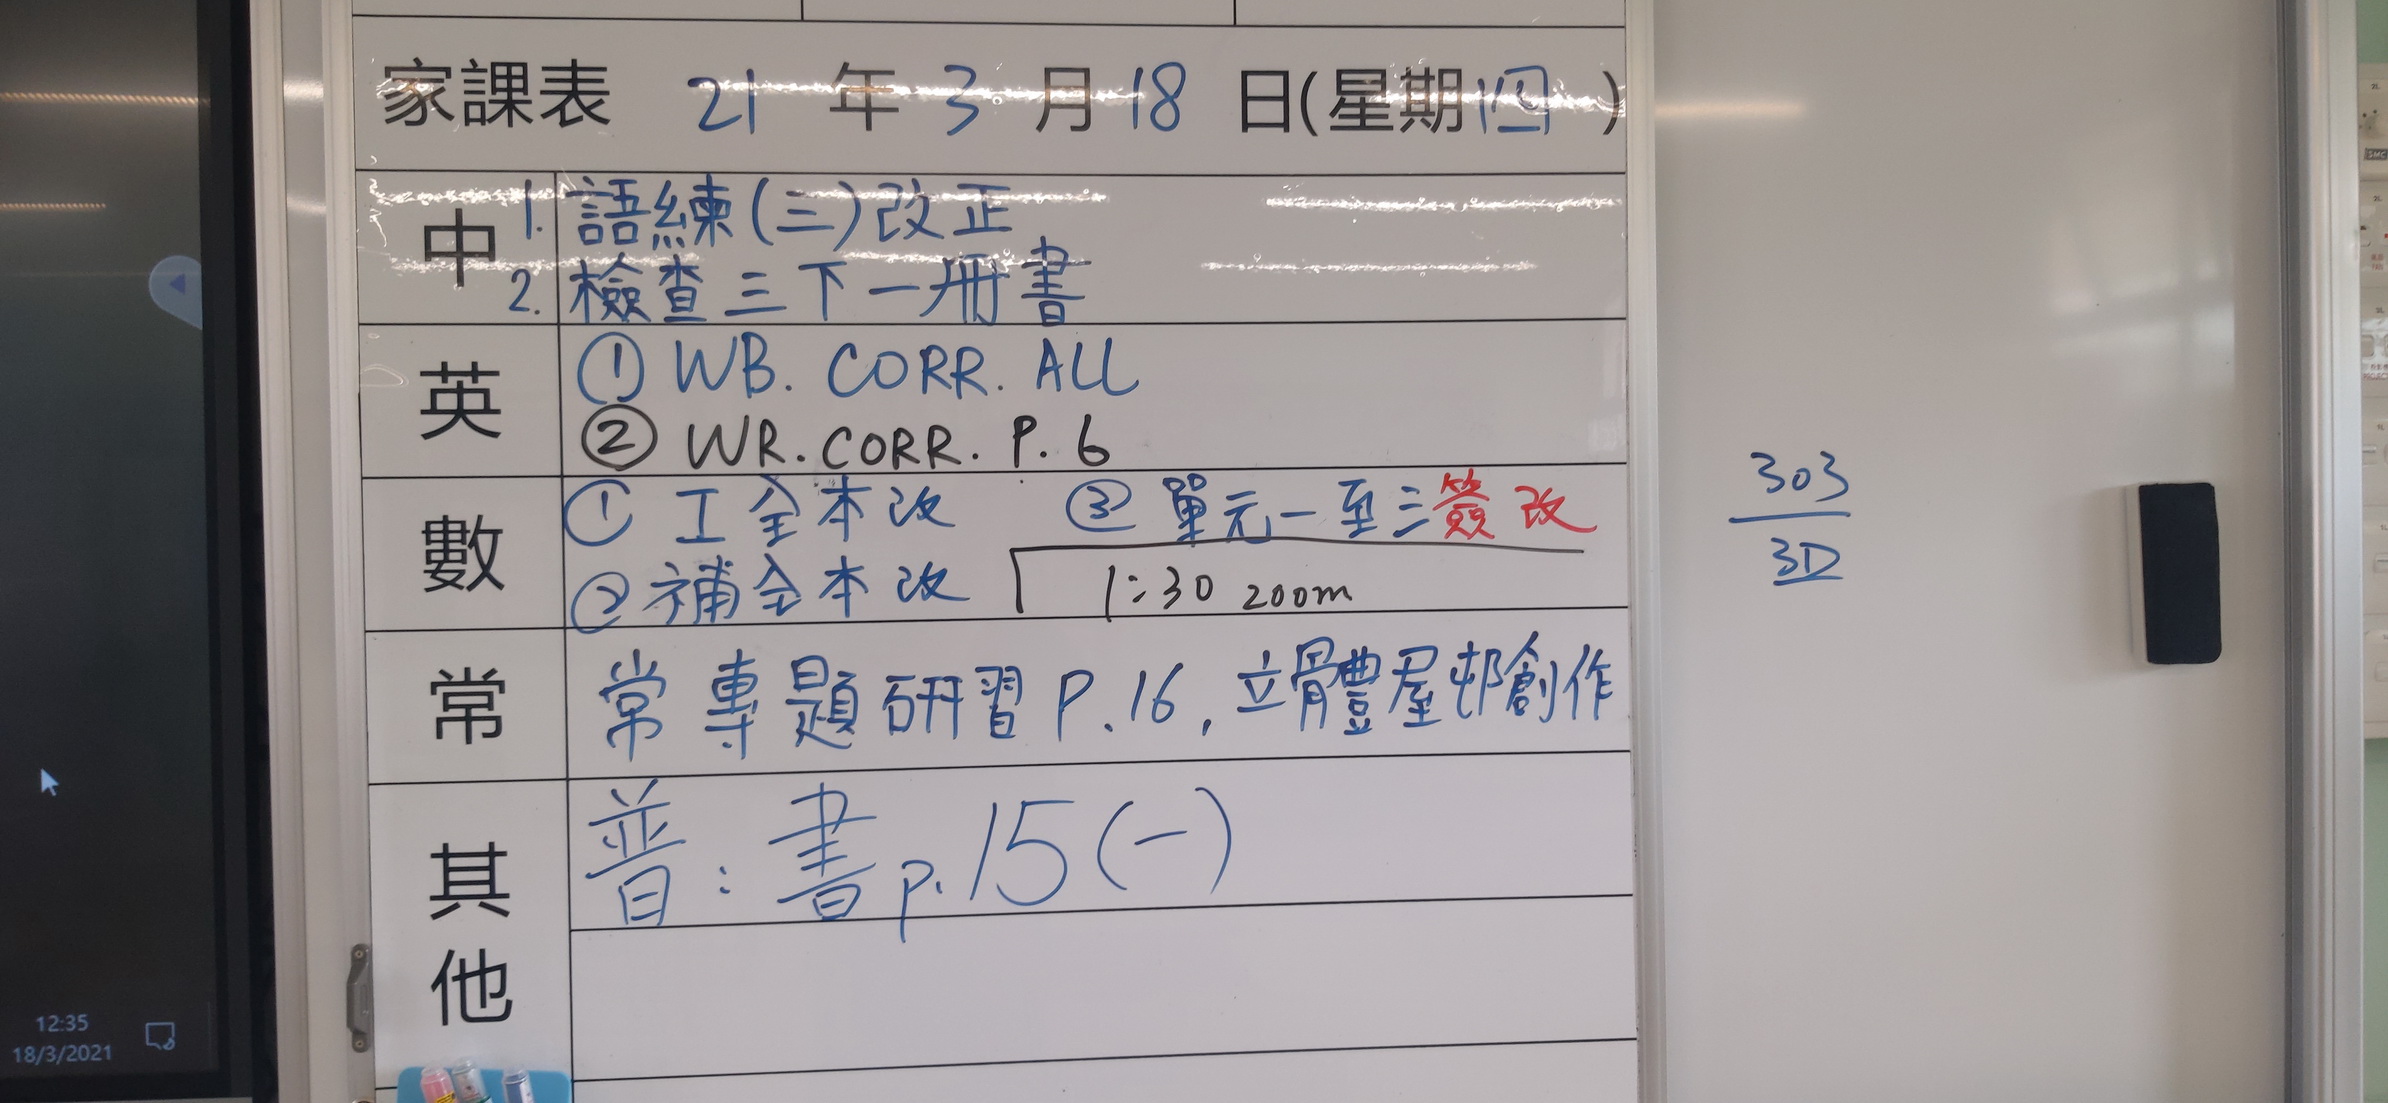 家課表 21 年 3 月 18 日(星期四)
中
1. 語練(三)改正
2. 檢查三下一冊書
英
① WB. CORR. ALL
② WR. CORR. P. 6
數
① 工全本改 ③ 單元一至三簽改
② 補全本改 1:30 zoom
常
常專題研習 P.16, 立體屋邨創作
其他
普:書 p. 15 (一)
303
3D
12:35
18/3/2021